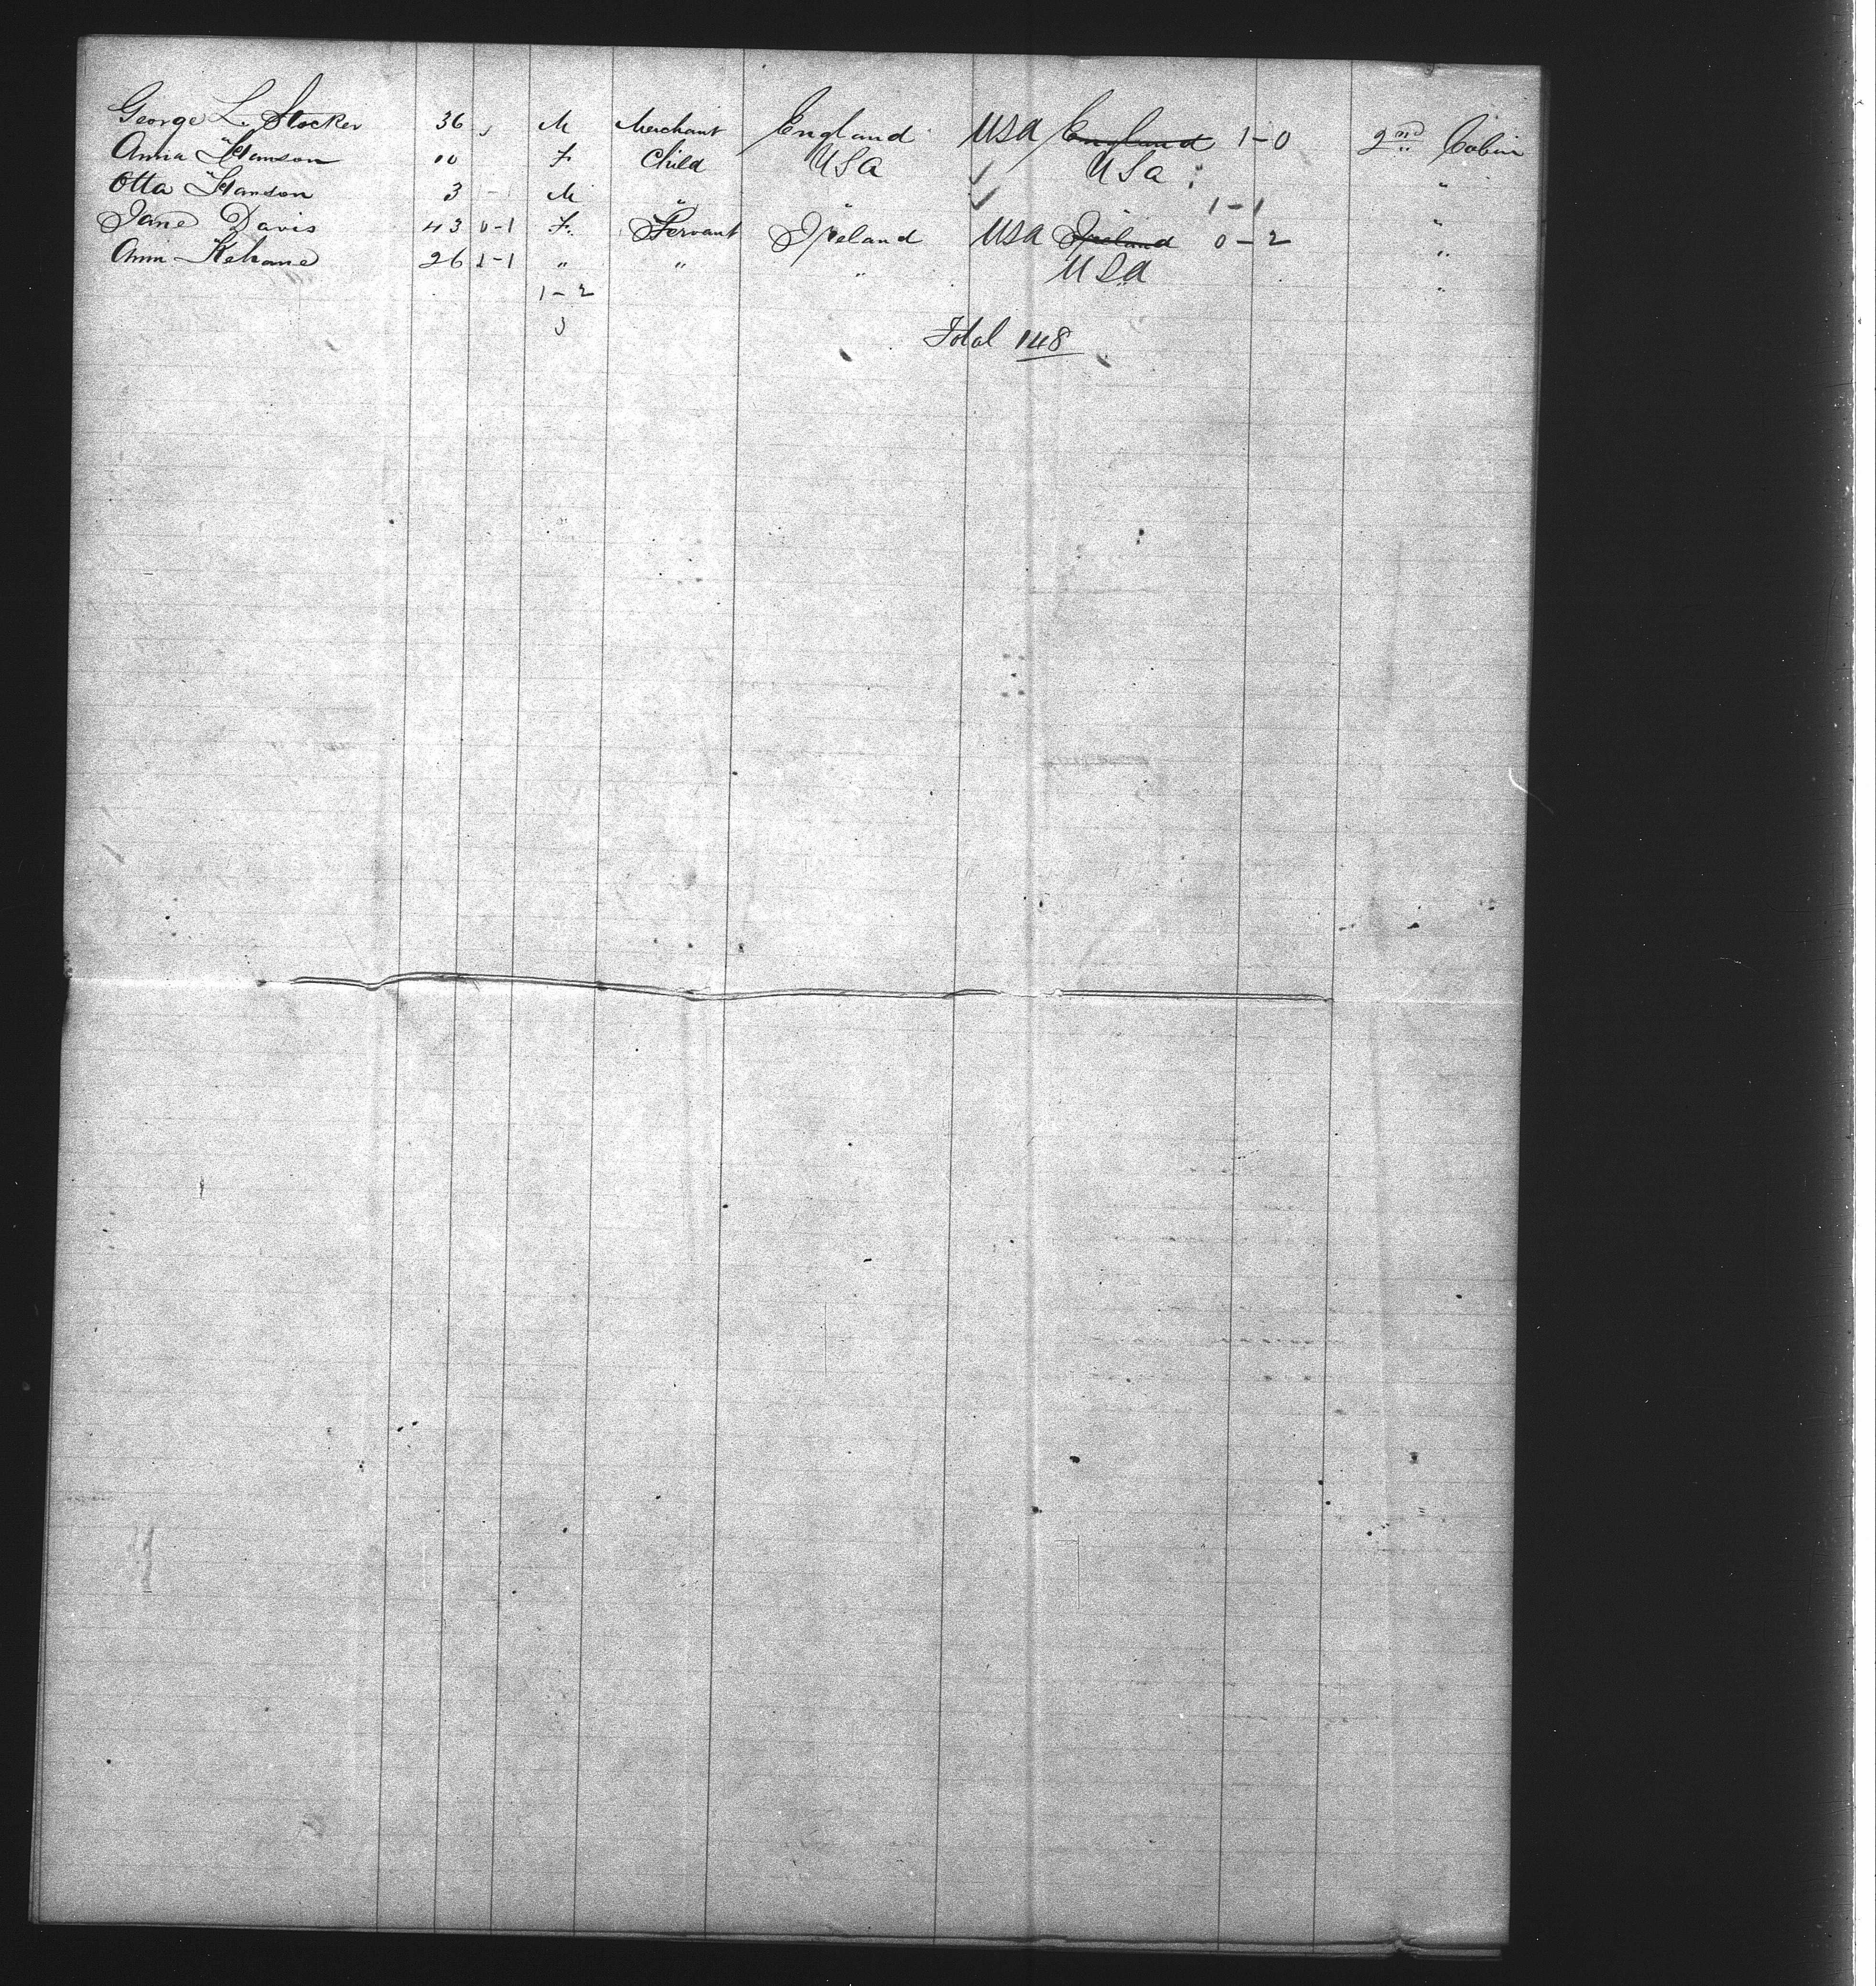 George L. Stocker 36 M Merchant England USA England 1-0 2nd Cabin
Anna Hanson 10 F Child USA ✓ USA "
Otto Hanson 3 M " " ✓ " 1-1 "
Jane Davis 43 0-1 F. Servant Ireland USA Ireland 0-2 "
Ann Kehane 26 1-1 " " " USA "
1-2
3
Total 148